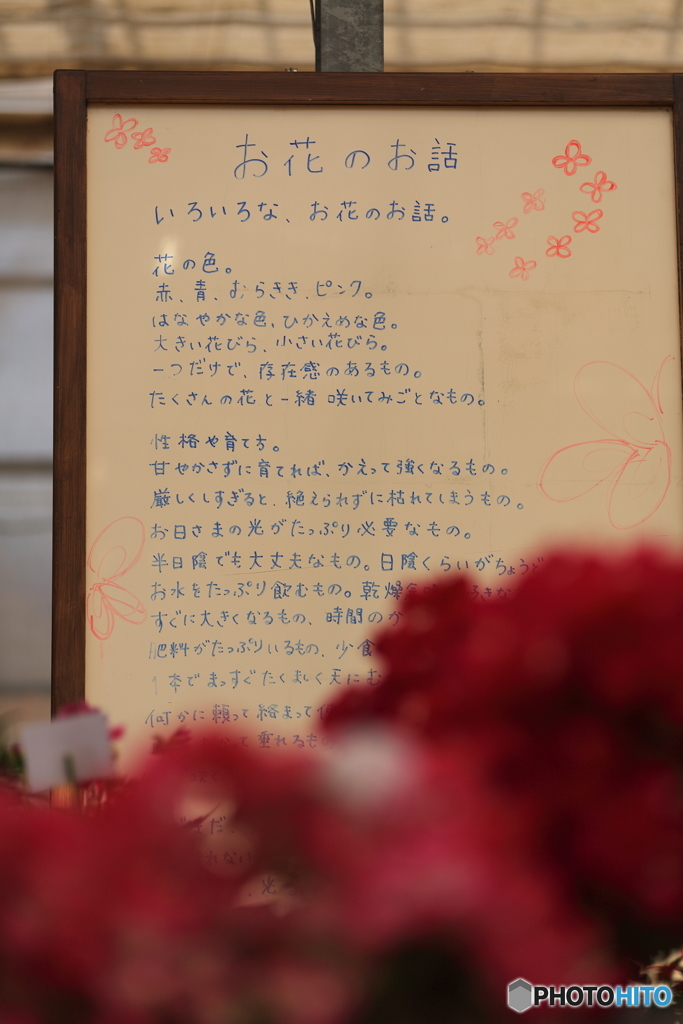 お花のお話
いろいろな、お花のお話。
花の色。
赤、青、むらさき、ピンク。
はなやかな色、ひかえめな色。
大きい花びら、小さい花びら。
一つだけで、存在感のあるもの。
たくさんの花と一緒咲いてみごとなもの。
性格や育て方。
甘やかさずに育てれば、かえって強くなるもの。
厳しくしすぎると、絶えられずに枯れてしまうもの。
お日さまの光がたっぷり必要なもの。
半日陰でも大丈夫なもの。日陰くらいがちょうど
お水をたっぷり飲むもの。乾燥
すぐに大きくなるもの、時間のか
肥料がたっぷりいるもの、少食
1本でまっすぐたくましく天にむ
何かに頼って絡まって
垂れるもの
PHOTOHITO